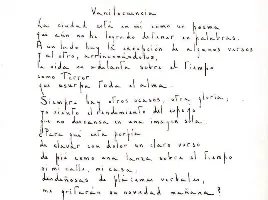 Vanilocuencia
La ciudad está en mí como un poema
que aún no he logrado detener en palabras.
A un lado hay la excepción de algunos versos
y al otro, arrinconándolos,
la vida se adelanta sobre el tiempo
como terror
que usurpa toda el alma.
Siempre hay otros ocasos, otra gloria;
yo siento el rendimiento del espejo
que no descansa en una imagen sola.
¿Para qué esta porfía
de clavar con dolor un claro verso
de pie como una lanza sobre el tiempo
si mi calle, mi casa,
desdeñosas de plácemes verbales,
me gritarán su novedad mañana?